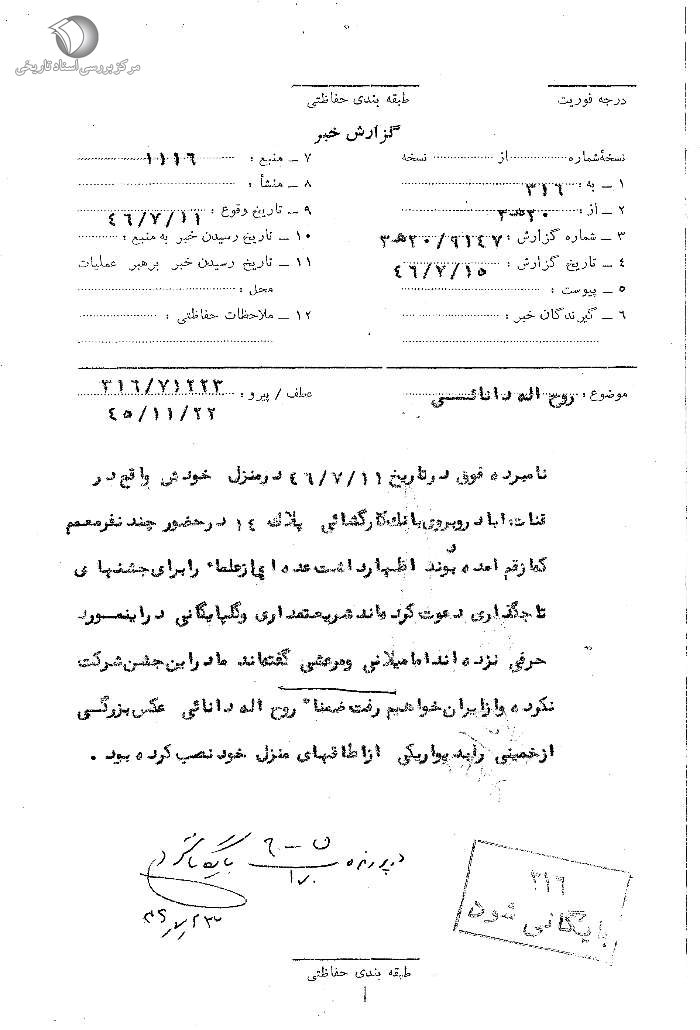 مرکز بررسی اسناد تاریخی
درجه فوریت
طبقه بندی حفاظتی
گزارش خبر
نسخهٔ شماره از نسخه
۱ ــ به : ۳۱٦
۲ ــ از : ۳ﻫ۲۰
۳ ــ شماره گزارش : ۳ﻫ۲۰/۹۱٤۷
٤ ــ تاریخ گزارش : ٤٦/۷/۱٥
٥ ــ پیوست :
٦ ــ گیرندگان خبر :
۷ ــ منبع : ۱۱۱٦
۸ ــ منشأ :
۹ ــ تاریخ وقوع : ٤٦/۷/۱۱
۱۰ ــ تاریخ رسیدن خبر به منبع :
۱۱ ــ تاریخ رسیدن خبر برهبر عملیات
محل :
۱۲ ــ ملاحظات حفاظتی :
موضوع : روح اله دانائی
عطف / پیرو : ۳۱٦/۷۱۲۲۳
٤٥/۱۱/۲۲
نامبرده فوق درتاریخ ٤٦/۷/۱۱ درمنزل خودش واقع در
قنات اباد روبروی بانک کارگشائی پلاک ۱٤ درحضور چند نفرمعمم
که ازقم امده بودند اظهارداشت عده ای ازعلماء رابرای جشنهای
تاجگذاری دعوت کرده اند شریعتمداری وگلپایگانی دراینمورد
حرفی نزده اند اما میلانی ومرعشی گفته اند مادراین جشن شرکت
نکرده وازایران خواهیم رفت ضمناً روح اله دانائی عکس بزرگی
ازخمینی رابدیواریکی ازاطاقهای منزل خود نصب کرده بود .
در پرونده
۳۱٦
بایگانی شود
طبقه بندی حفاظتی
۱